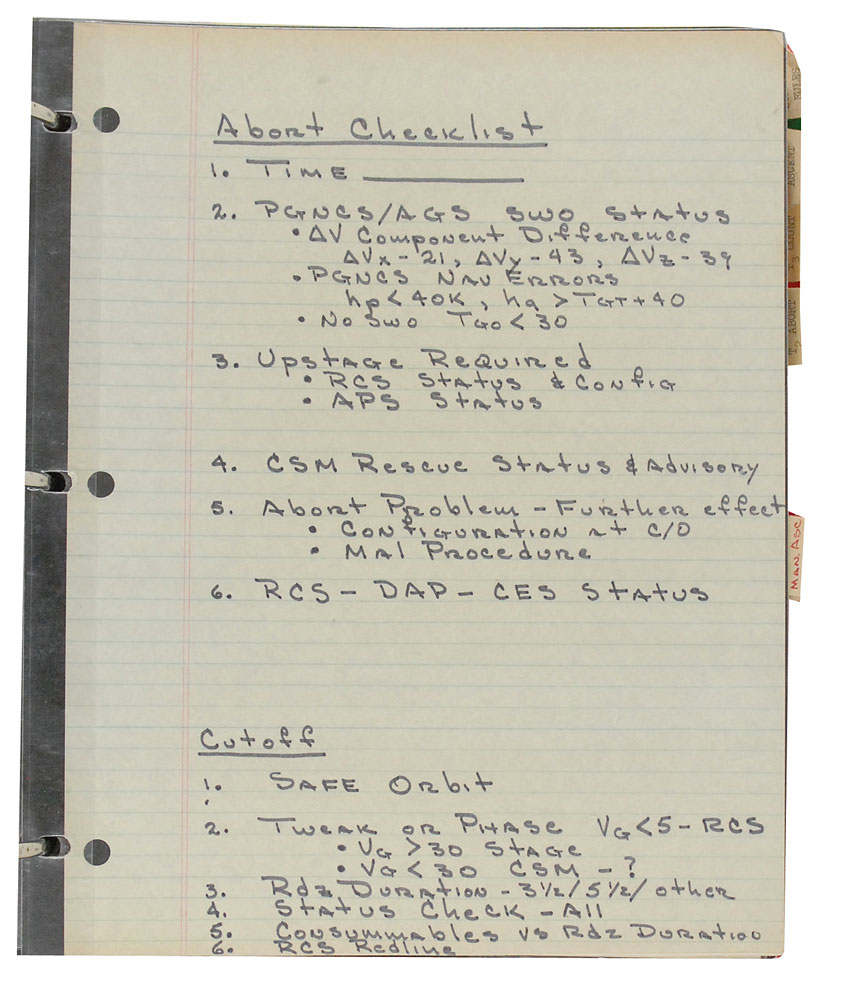 Abort Checklist
1. TIME
2. PGNCS/AGS SWO STATUS
• ΔV Component Difference
ΔVx - 21, ΔVy - 43, ΔVz - 39
• PGNCS NAV ERRORS
hp < 40K, ha > TGT + 40
• No SWO TGO < 30
3. Upstage Required
• RCS Status & Config
• APS Status
4. CSM Rescue Status & Advisory
5. Abort Problem - Further effect
• Configuration at C/O
• Mal Procedure
6. RCS - DAP - CES Status
Cutoff
1. SAFE Orbit
2. Tweak or Phase VG < 5 - RCS
• VG > 30 Stage
• VG < 30 CSM - ?
3. Rdz Duration - 3 1/2 / 5 1/2 / other
4. Status Check - All
5. Consummables vs Rdz Duration
6. RCS Redline
RULES
ASCENT
ABORT
MAN. ASC